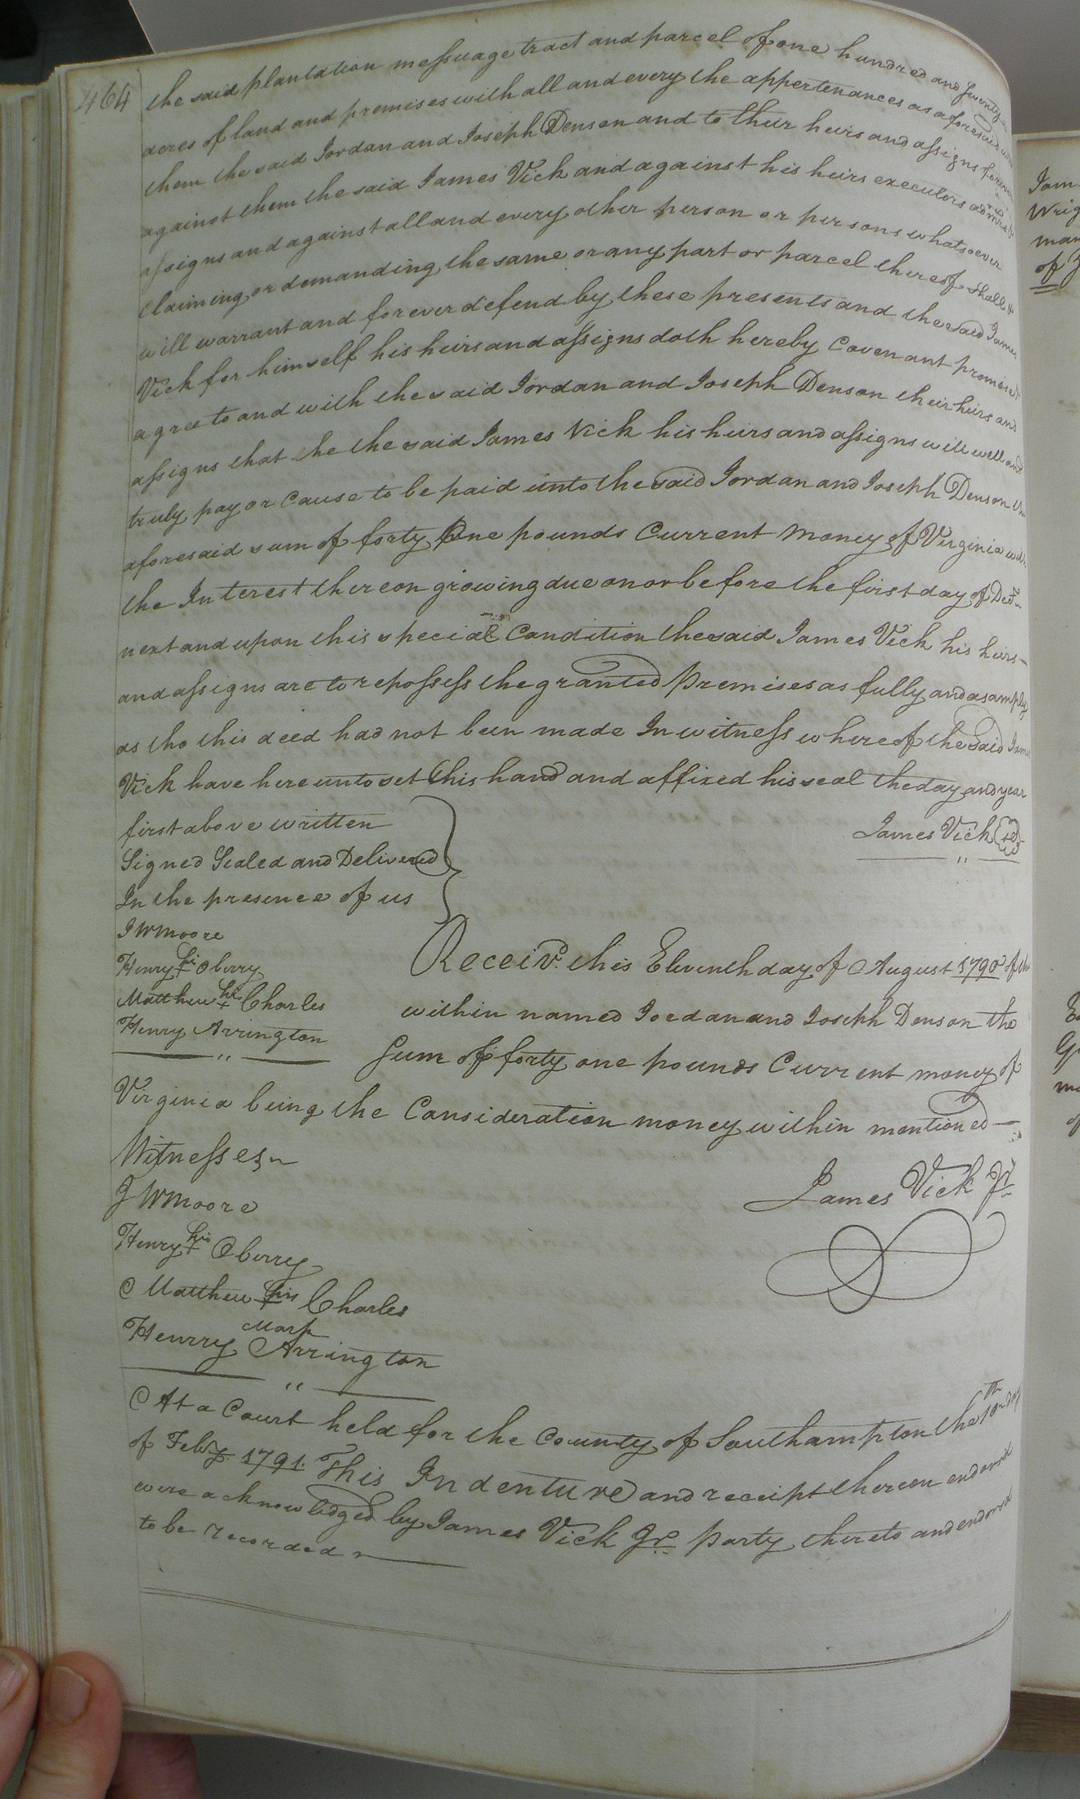 464
the said plantation messuage tract and parcel of one hundred and twenty
acres of land and premises with all and every the appertenances as aforesaid unto
them the said Jordan and Joseph Denson and to their heirs and assigns forever
against them the said James Vick and against his heirs executors admrs &
assigns and against all and every other person or persons whatsoever
claiming or demanding the same or any part or parcel thereof shall &
will warrant and forever defend by these presents and the said James
Vick for himself his heirs and assigns doth hereby Covenant promise &
agree to and with the said Jordan and Joseph Denson their heirs and
assigns that he the said James Vick his heirs and assigns will well and
truly pay or cause to be paid unto the said Jordan and Joseph Denson the
aforesaid sum of forty One pounds Current Money of Virginia with
the Interest thereon growing due on or before the first day of Decr.
next and upon this special Condition the said James Vick his heirs
and assigns are to repossess the granted Premises as fully and as amply
as tho this deed had not been made In witness whereof the said James
Vick have hereunto set his hand and affixed his seal the day and year
first above written
James Vick
Signed Sealed and Delivered
In the presence of us
J W Moore
Henry his + Oberry
Matthew his + Charles
Henry Arrington
Receivd. this Eleventh day of August 1790 of the
within named Jordan and Joseph Denson the
Sum of forty one pounds Current money of
Virginia being the Consideration money within mentioned
Witnesses
J W Moore
James Vick Jr
Henry his + Oberry
Matthew his + Charles
Mark
Henrry Arrington
At a Court held for the County of Southampton the 10th day
of Feby. 1791. This Indenture and receipt thereon endorsed
were acknowledged by James Vick Jr. party thereto and endorsed
to be recorded
Jam
Wrig
man
of